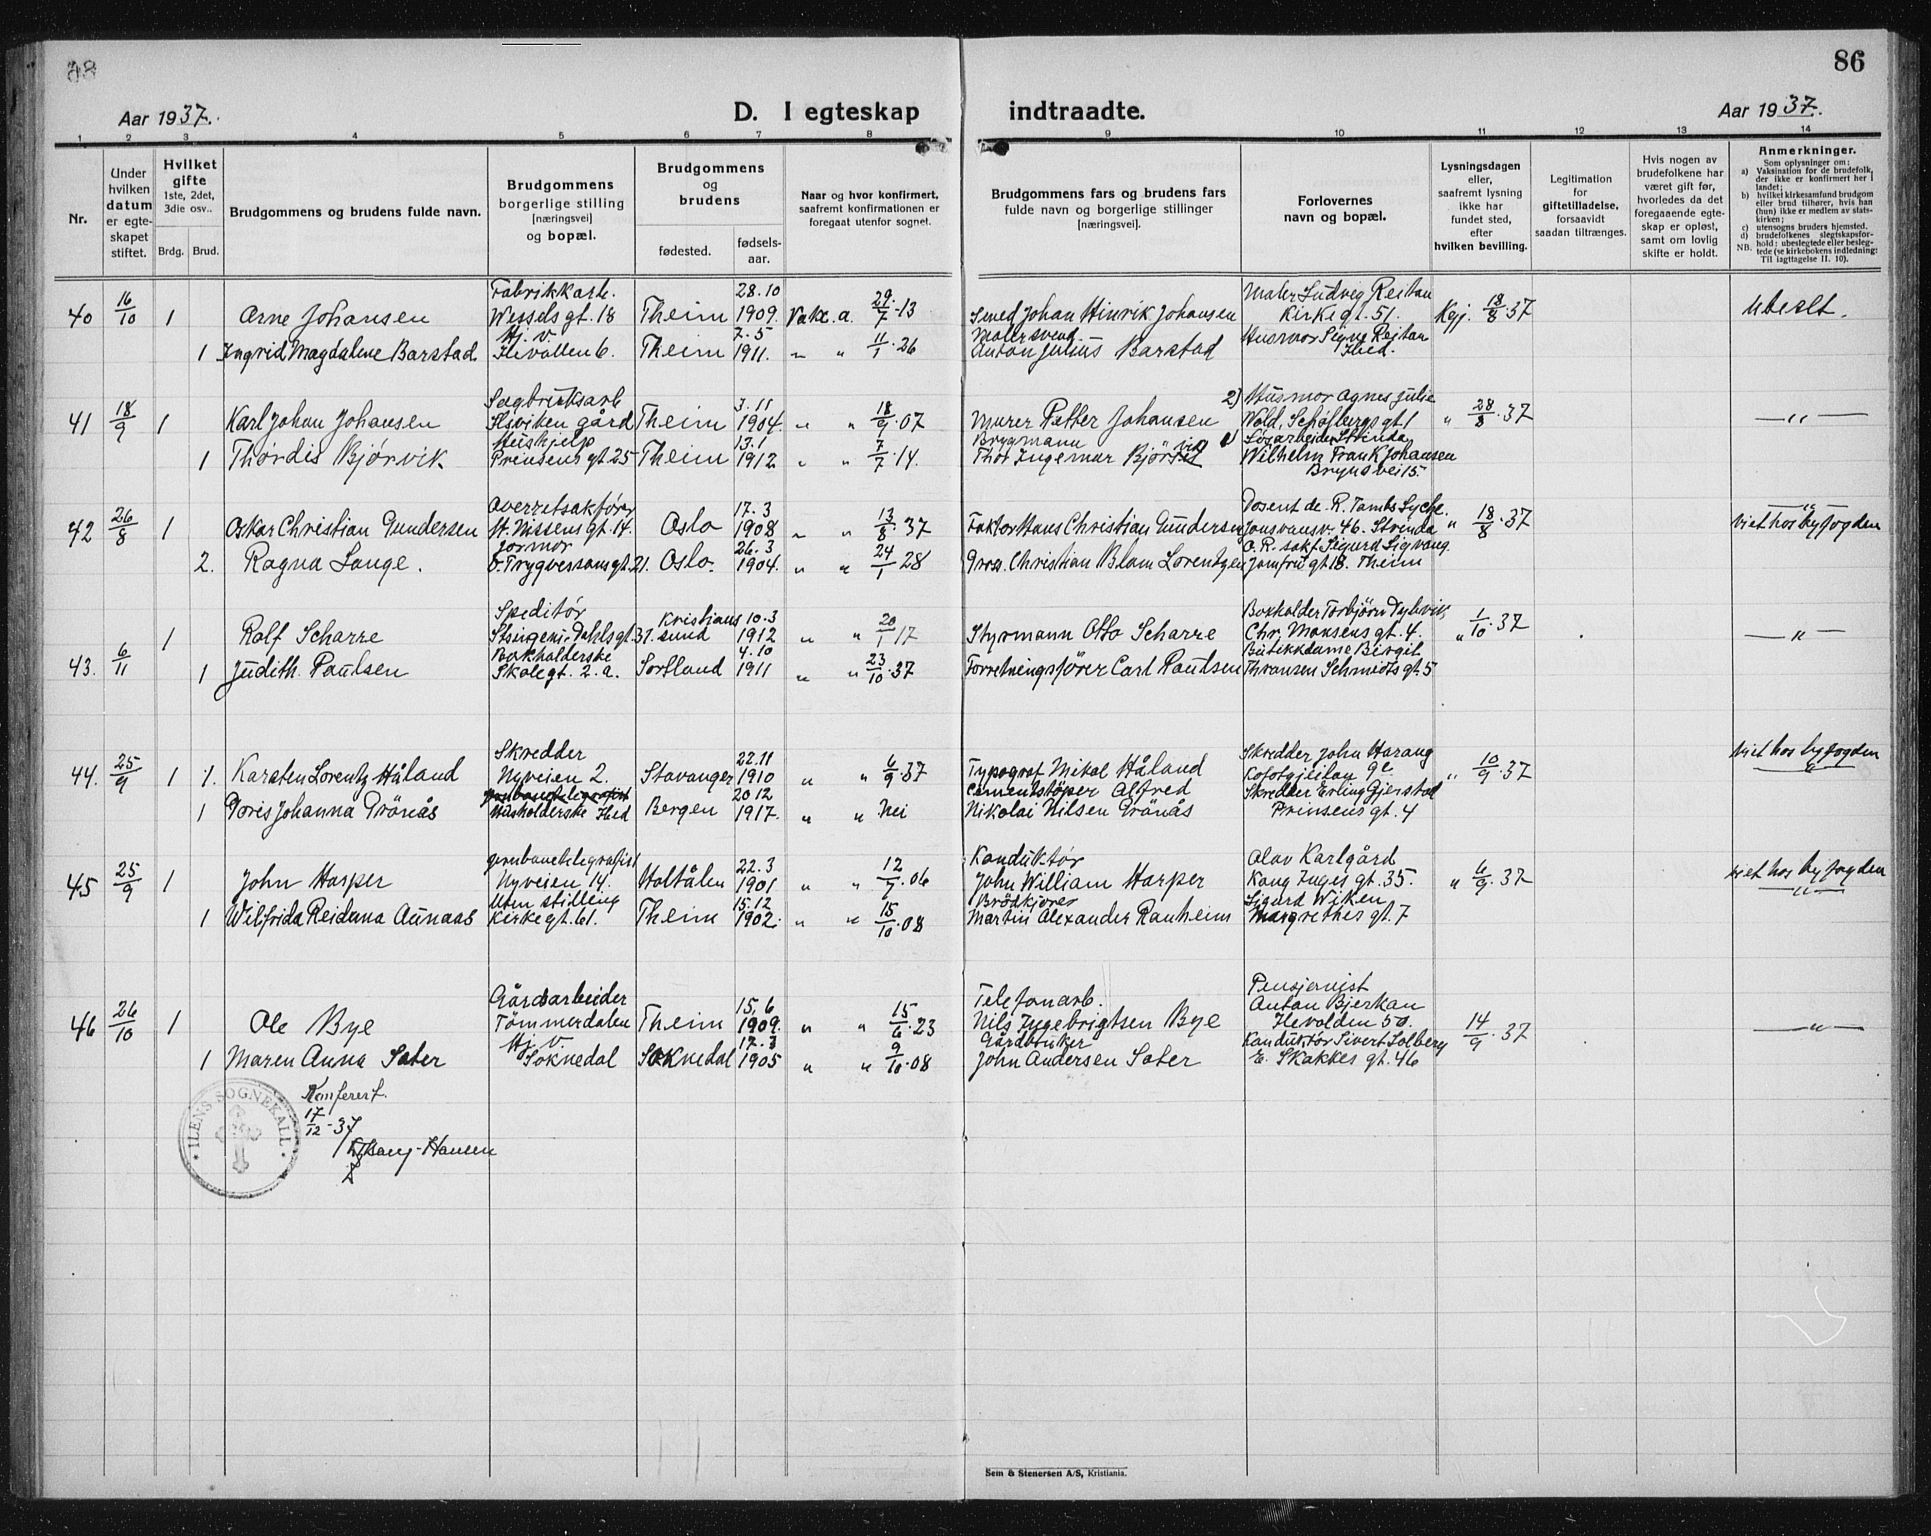 86
Aar 1937.
D. I egteskap indtraadte.
Aar 1937.
1 2 3 4 5 6 7 8 9 10 11 12 13 14
Nr.
Under hvilken datum er egteskapet stiftet.
Hvilket gifte 1ste, 2det, 3die osv..
Brdg. Brud.
Brudgommens og brudens fulde navn.
Brudgommens borgerlige stilling [næringsvei] og bopæl.
Brudgommens og brudens
fødested. fødselsaar.
Naar og hvor konfirmert, saafremt konfirmationen er foregaat utenfor sognet.
Brudgommens fars og brudens fars fulde navn og borgerlige stillinger [næringsvei].
Forlovernes navn og bopæl.
Lysningsdagen eller, saafremt lysning ikke har fundet sted, efter hvilken bevilling.
Legitimation for giftetilladelse, forsaavidt saadan tiltrænges.
Hvis nogen av brudefolkene har været gift før, hvorledes da det foregaaende egteskap er opløst, samt om lovlig skifte er holdt.
Anmerkninger.
Som oplysninger om:
a) Vaksination for de brudefolk, der ikke er konfirmert her i landet;
b) hvilket kirkesamfund brudgom eller brud tilhører, hvis han (hun) ikke er medlem av statskirken;
c) utensogns bruders hjemsted.
d) brudefolkenes slegtskapsforhold: ubeslegtede eller beslegtede (se kirkebokens indledning: NB. Til iagttagelse II. 10).
40 16/10 1 Arne Johansen Fabrikkarb. Wessels gt. 18 Theim 28.10 1909. Vakc. a. 29/7-13 Smed Johan Hinrik Johansen Maler Ludvig Reitan Kirkegt. 51. Kgj. 18/8-37 Ubealt.
1 Ingrid Magdalene Barstad Hj. v. Ilevollen 6. Theim 7.5 1911. " " 11/1-26 Malersvend Anton Julius Barstad Husmor Signe Reitan Ibid.
41 18/9 1 Karl Johan Johansen Sagbruksarb Ilsviken gård Theim 3.11 1904. " " 18/9-07 Murer Petter Johansen 2) Husmor Agnes Julie Wold, " 28/8-37 — " —
1 Thordis Bjørvik Hushjelp Prinsens gt. 25 Theim 13.1 1912 " " 7/7-14. Brygmann Thor Ingemar Bjørvik Wilhelm Frank Johansen
42 26/8 1 Oskar Christian Gundersen Overretsakfører St. Nissens gt. 14. Oslo 17.3 1908 " " 13/8-37 Faktor Hans Christian Gundersen Dosent de. R. Tambs Lyche. Jonsvansv. 46. Strinda " 18/8-37 — " — Viet hos byfogden
2. Ragna Lange. Jormor O. Trygvessons gt. 21. Oslo. 26.3 1904. " " 24/1 28 Gros. Christian Blom Lorentzen O. R. sakf. Sigurd Sigvang Jomfrugt 18. Theim
43. 6/11 1 Rolf Scharre Speditør Dahlsgt. 37. Kristiansund 10.3 1912 " " 20/1 17 Styrmann Otto Scharre Bokholder Torbjørn Dybvik, Chr. Monsens gt. 4. " 1/10-37 — " —
1 Judith Paulsen Bokholderske Skolegt. 2.a. Sortland 4.10 1911 " " 23/10-37 Forretningsfører Carl Paulsen Butikkdame Birgit Thransen Schmidts gt. 5
44. 25/9 1 1. Karsten Lorentz Håland Skredder Nyveien 2. Stavanger 22.11 1910 " " 6/9-37 Typograf Mikal Håland Skredder John Harang " 10/9-37 Viet hos byfogden
1 Doris Johanna Grönås Husholderske Ibid Bergen 20.12 1917. " " nei Cementstøper Alfred Nikolai Nilsen Grönås Skredder Erling Gjerstad Prinsens gt. 4
45 25/9 1 John Harper Jernbanetelegrafist Nyveien 14. Holtålen 22.3 1901 " " 12/7-06 Konduktør John William Harper Olav Karlgård Kong Inges gt. 35. " 6/9-37 Viet hos byfogden
1 Wilfrida Reiduna Aunaas Uten stilling Kirkegt. 61. Theim 15.12 1902. " " 15/10-08 Brödkjører Martin Alexander Ranheim Sigurd Wiken Margrethes gt. 7
46 26/10 1 Ole Bye Gårdsarbeider Tömmerdalen Theim 15.6 1909. " " 15/6-23 Telefonarb. Nils Ingebrigtsen Bye Pensjonist Anton Bjerkan Ilevolden 50. 14/9-37 — " —
1 Maren Anna Sater Hj. v. Soknedal Soknedal 17.3 1905 " " 9/10-08 Gårdbruker John Andersen Sater Konduktör Sivert Solberg E. Skakkes gt. 46
Konferert.
17/12-37
Bang-Hansen
ILENS SOGNEKALL
Sem & Stenersen A/S, Kristiania.